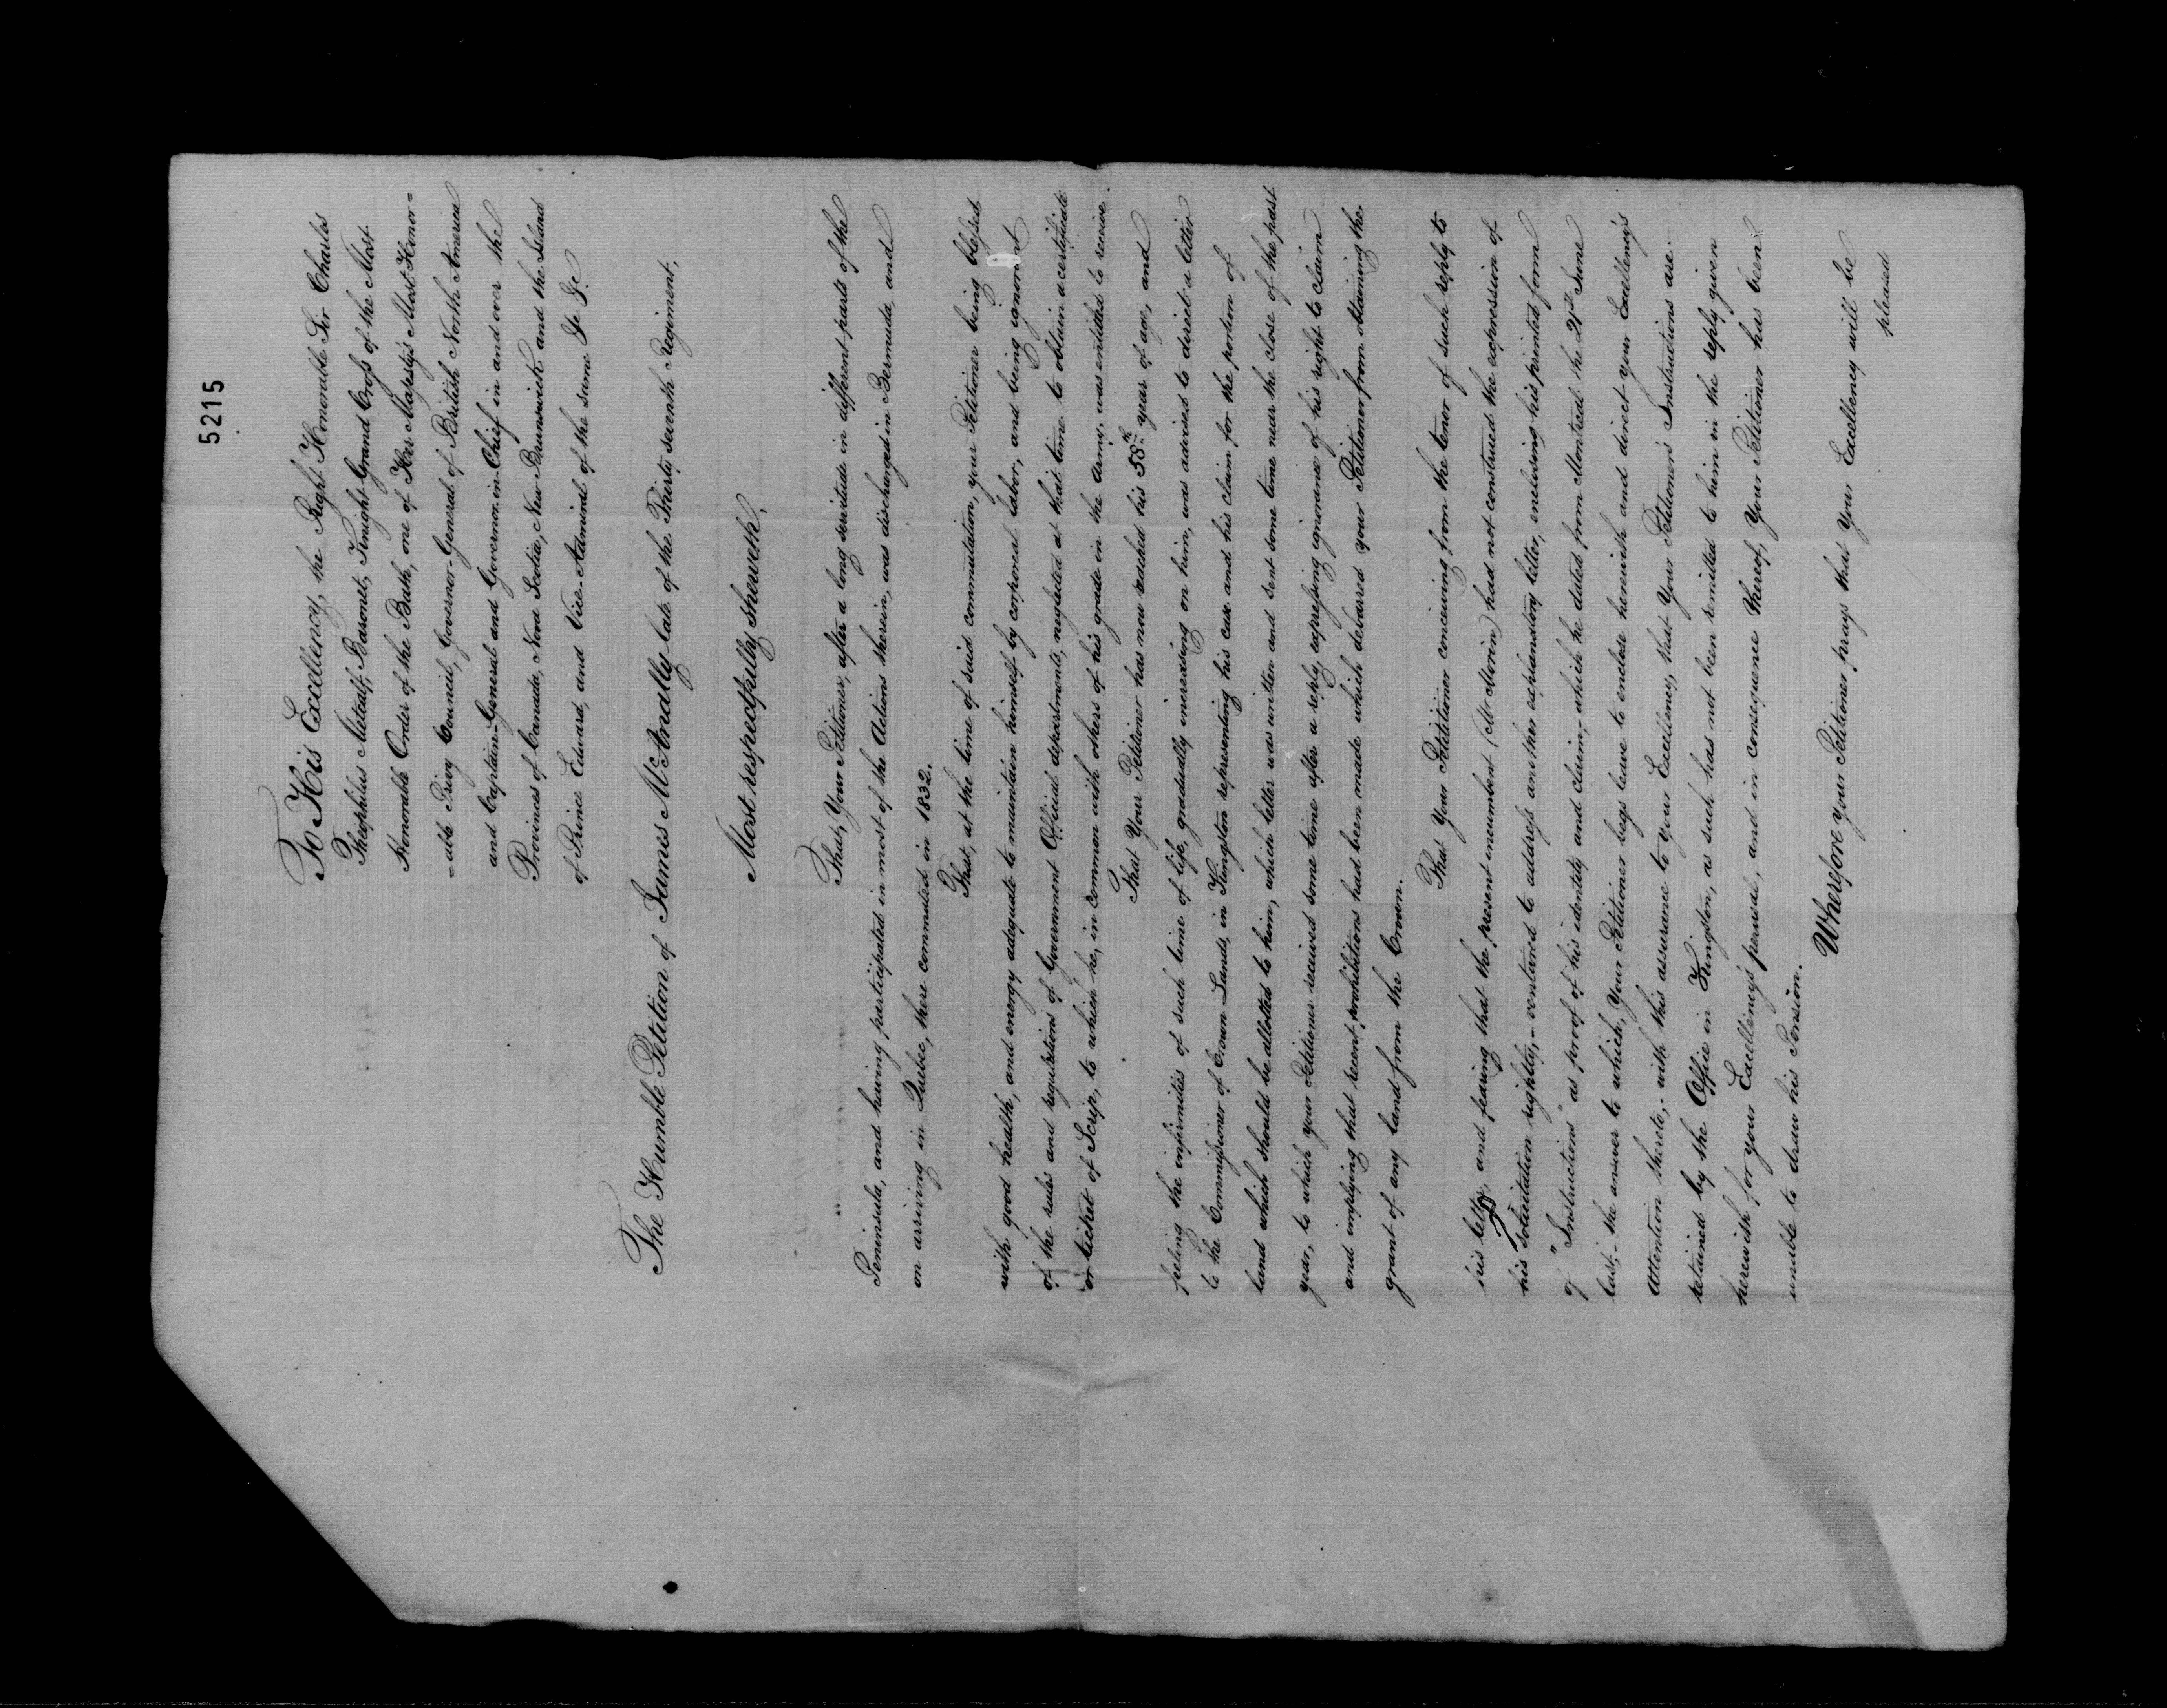 5215
To His Excellency, the Right Honorable Sir Charles
Theophilus Metcalf, Baronet, Knight Grand Cross of the Most
Honorable Order of the Bath, one of Her Majesty's Most Honor=
=able Privy Council, Governor-General of British North America
and Captain-General and Governor-in-Chief in and over the
Provinces of Canada, Nova Scotia, New-Brunswick and the Island
of Prince Edward, and Vice-Admiral of the same &c &c.
The Humble Petition of James McAnally late of the Thirty seventh Regiment,
Most respectfully Sheweth,
That, Your Petitioner, after a long servitude in different parts of the
Peninsula, and having participated in most of the Actions therein, was discharged in Bermuda, and
on arriving in Quebec, there commuted in 1832.
That, at the time of said commutation, your Petitioner being blessed
with good health, and energy adequate to maintain himself by corporeal labor, and being ignorant
of the rules and regulations of Government Official departments, neglected at that time to obtain a certificate
or ticket of Scrip, to which he, in common with others of his grade in the Army, was entitled to receive.
That Your Petitioner has now reached his 58th year of age, and
feeling the infirmities of such time of life, gradually encreasing on him, was advised to direct a letter
to the Commissioner of Crown Lands, in Kingston representing his case and his claim for the portion of
land which should be allotted to him, which letter was written and sent some time near the close of the past
year, to which your Petitioner received some time after a reply, expressing ignorance of his right to claim
and implying that recent prohibitions had been made which debarred your Petitioner from obtaining the
grant of any land from the Crown.
That Your Petitioner conceiving from the tenor of such reply to
his letter, and fearing that the present incumbent (Mr Morin) had not construed the expression of
his solicitation rightly, - ventured to address another explanatory letter, enclosing his printed form
of "Instructions" as proof of his identity and claim, - which he dated from Montreal the 21st June
last, - the answer to which, Your Petitioner begs leave to enclose herewith and direct your Excellency's
Attention thereto, - with this assurance to your Excellency, that Your Petitioner's Instructions are
retained by the Office in Kingston, as such has not been remitted to him in the reply given
herewith for your Excellency's perusal, and in consequence thereof, Your Petitioner has been
unable to draw his Pension.
Wherefore your Petitioner prays that your Excellency will be
pleased